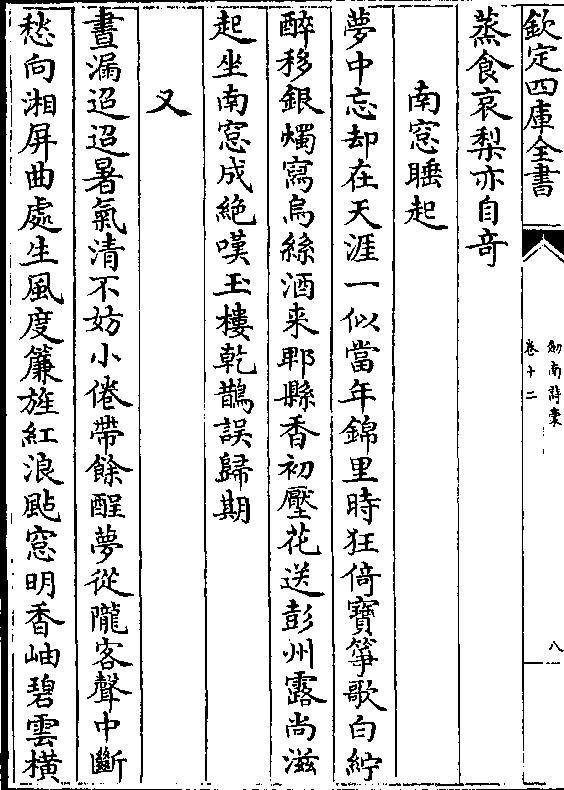 欽定四庫全書
劍南詩稾
卷十二
八
蒸食哀梨亦自竒
南窓睡起
夢中忘却在天涯一似當年錦里時狂倚寶筝歌白紵
醉移銀燭寫烏絲酒来郫縣香初壓花送彭州露尚滋
起坐南窓成絶嘆玉樓乾鵲誤歸期
又
晝漏迢迢暑氣清不妨小倦帶餘酲夢從隴客聲中斷
愁向湘屏曲處生風度簾旌紅浪颭窓明香岫碧雲橫